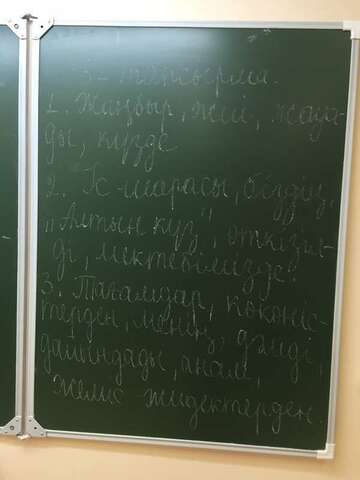 3 - тапсырма.
1. Жаңбыр, жиі, жауа-
ды, күзде
2. Іс-шарасы, біздің,
„Алтын күз", өткізіл-
ді, мектебімізде.
3. Тағамдар, көкөніс-
терден, менің, дәмді,
дайындады, анам,
жеміс жидектерден.